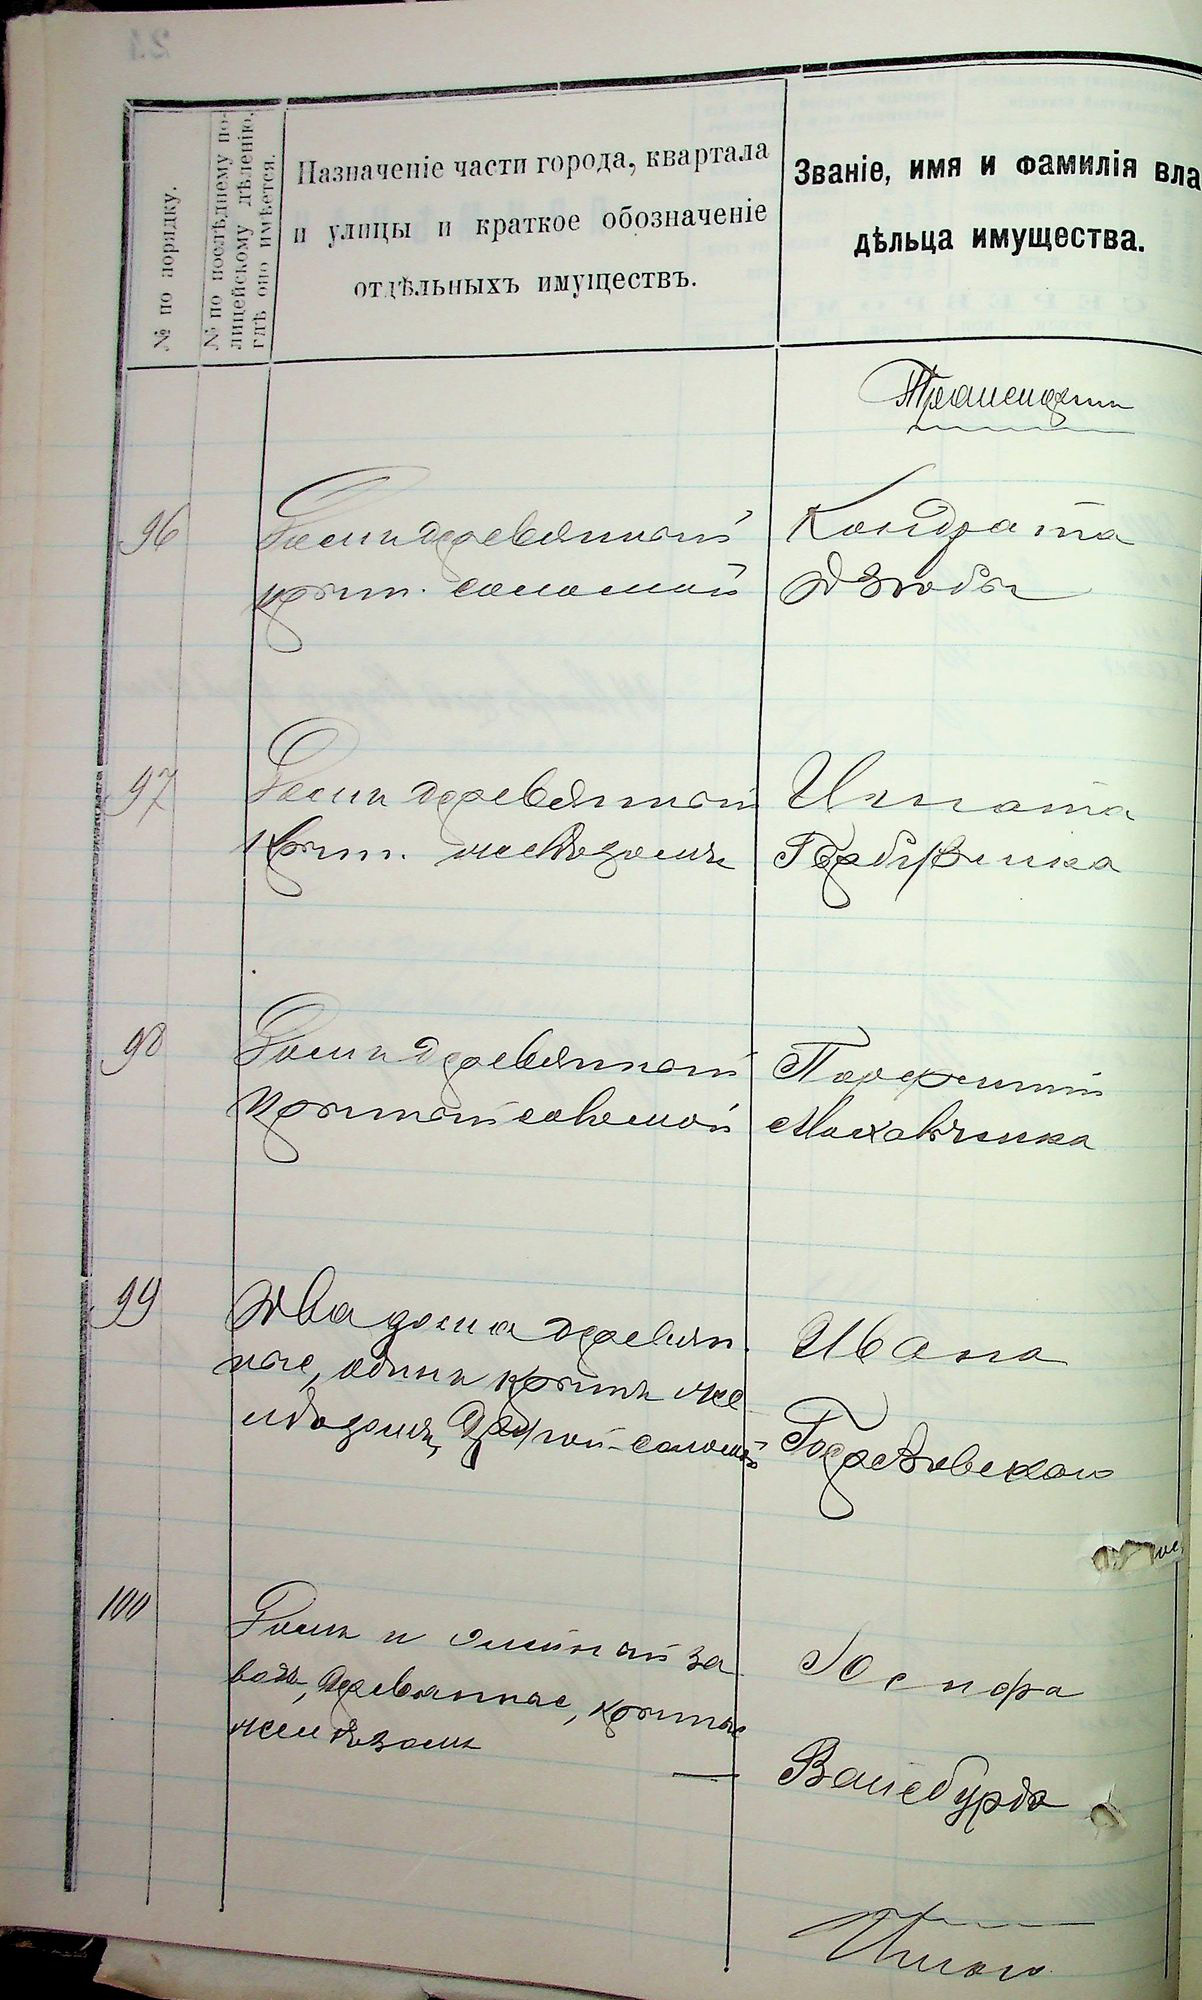 № по порядку.
№ по послѣднему по-
лицейскому дѣленію,
гдѣ оно имѣется.
Назначеніе части города, квартала
и улицы и краткое обозначеніе
отдѣльныхъ имуществъ.
Званіе, имя и фамилія вла
дѣльца имущества.
Транспортъ
96
Домъ деревянный
крыт. соломой
Кондрата
Дзюбы
97
Домъ деревянный
крыт. желѣзомъ
Игната
98
Домъ деревянный
крытый соломой
Порфирій
99
Два дома деревян-
ные, одинъ крытъ же
лѣзомъ, другой-соломой
Ивана
100
Домъ и заводъ
водъ, деревянные, крытые
желѣзомъ
Іосифа
Вайсбурда
Итого